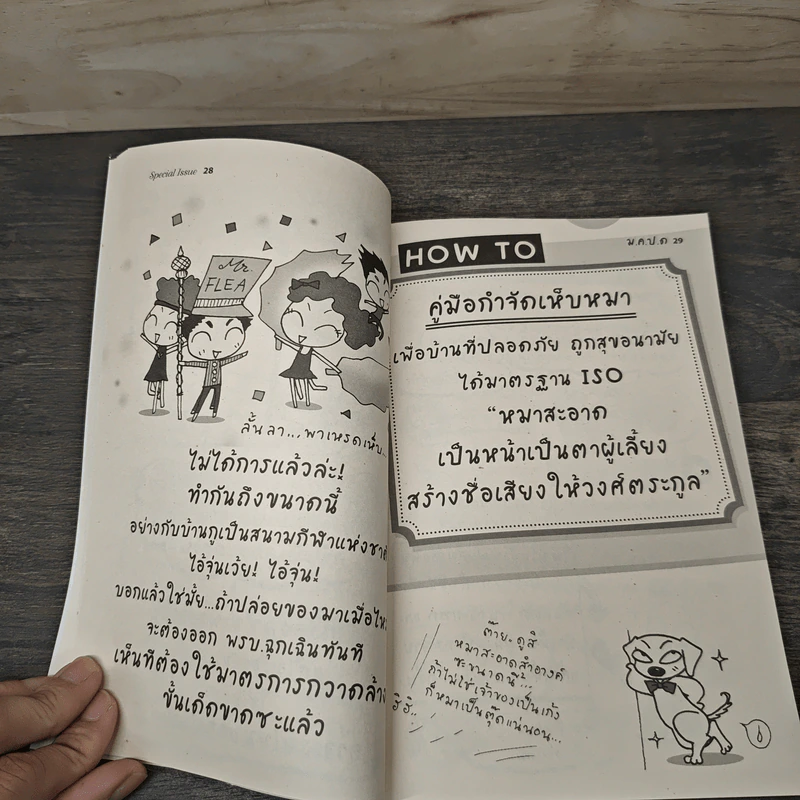 Special Issue 28
Mr.
FLEA
ลั้น ลา...พาเหรดเห็บ...
ไม่ได้การแล้วล่ะ!
ทำกันถึงขนาดนี้
อย่างกับบ้านกูเป็นสนามกีฬาแห่งชา
ไอ้จุ่นเว้ย! ไอ้จุ่น!
บอกแล้วใช่มั้ย...ถ้าปล่อยของมาเมื่อไห
จะต้องออก พรบ.ฉุกเฉินทันที
เห็นทีต้องใช้มาตรการกวาดล้าง
ขั้นเด็ดขาดซะแล้ว
HOW TO
ม.ค.ป.ด 29
คู่มือกำจัดเห็บหมา
เพื่อบ้านที่ปลอดภัย ถูกสุขอนามัย
ได้มาตรฐาน ISO
“หมาสะอาด
เป็นหน้าเป็นตาผู้เลี้ยง
สร้างชื่อเสียงให้วงศ์ตระกูล”
ต๊าย..ดูสิ
หมาสะอาดสำอางค์
ซะขนาดนี้...
ถ้าไม่ใช่เจ้าของเป็นเก้ง
ก็หมาเป็นตุ๊ดแน่นอน...
ฮิฮิ..